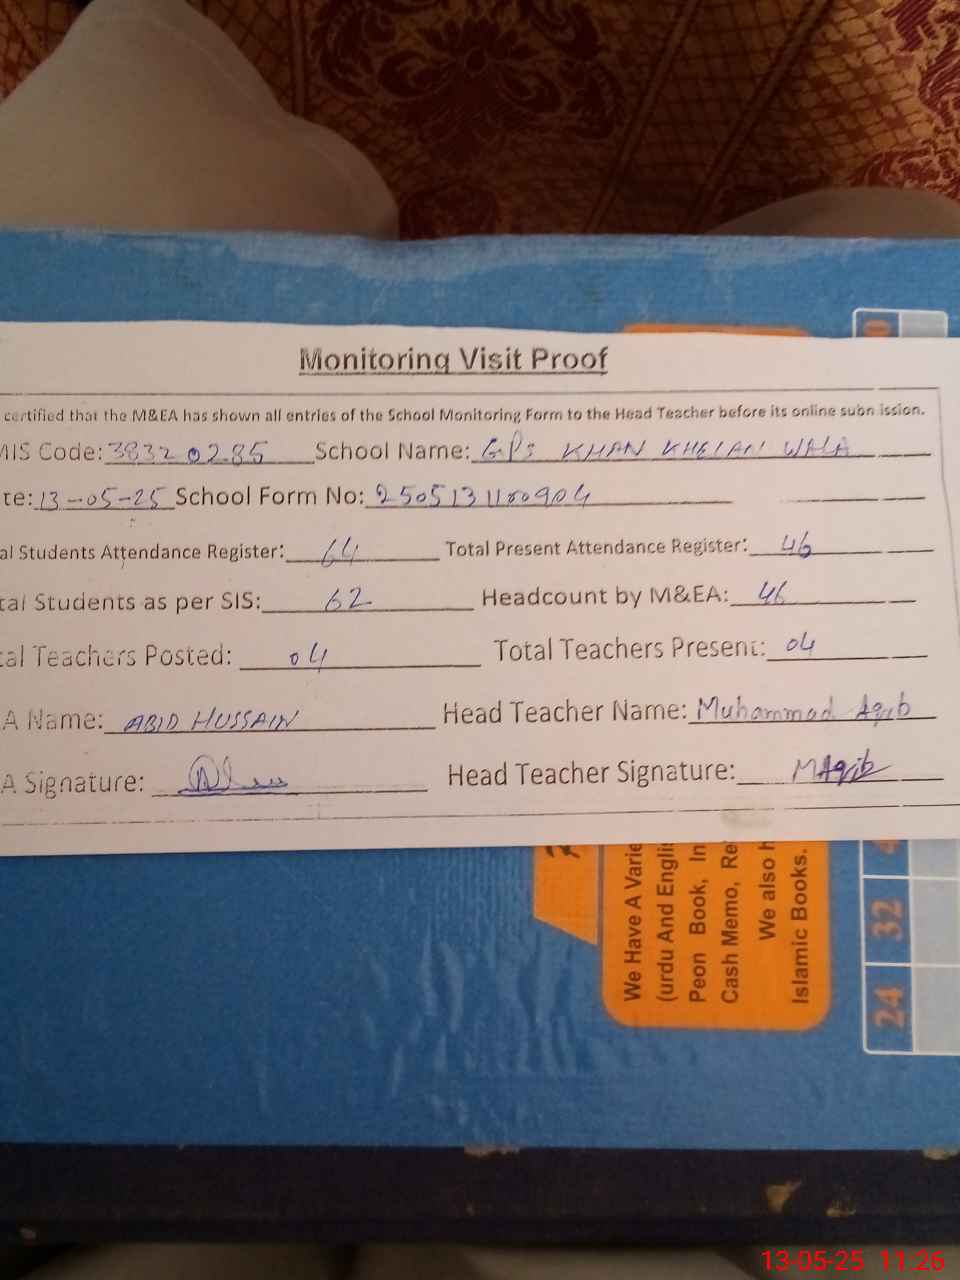 Monitoring Visit Proof
certified that the M&EA has shown all entries of the School Monitoring Form to the Head Teacher before its online submission.
MIS Code: 38320285 School Name: GPS KHAN KHELAN WALA
te: 13-05-25 School Form No: 2505131100904
al Students Attendance Register: 64 Total Present Attendance Register: 46
tal Students as per SIS: 62 Headcount by M&EA: 46
tal Teachers Posted: 04 Total Teachers Present: 04
A Name: ABID HUSSAIN Head Teacher Name: Muhammad Aqib
A Signature: Head Teacher Signature: MAqib
We Have A Varie
(urdu And Englis
Peon Book, In
Cash Memo, Re
We also h
Islamic Books.
24 32
13-05-25 11:26